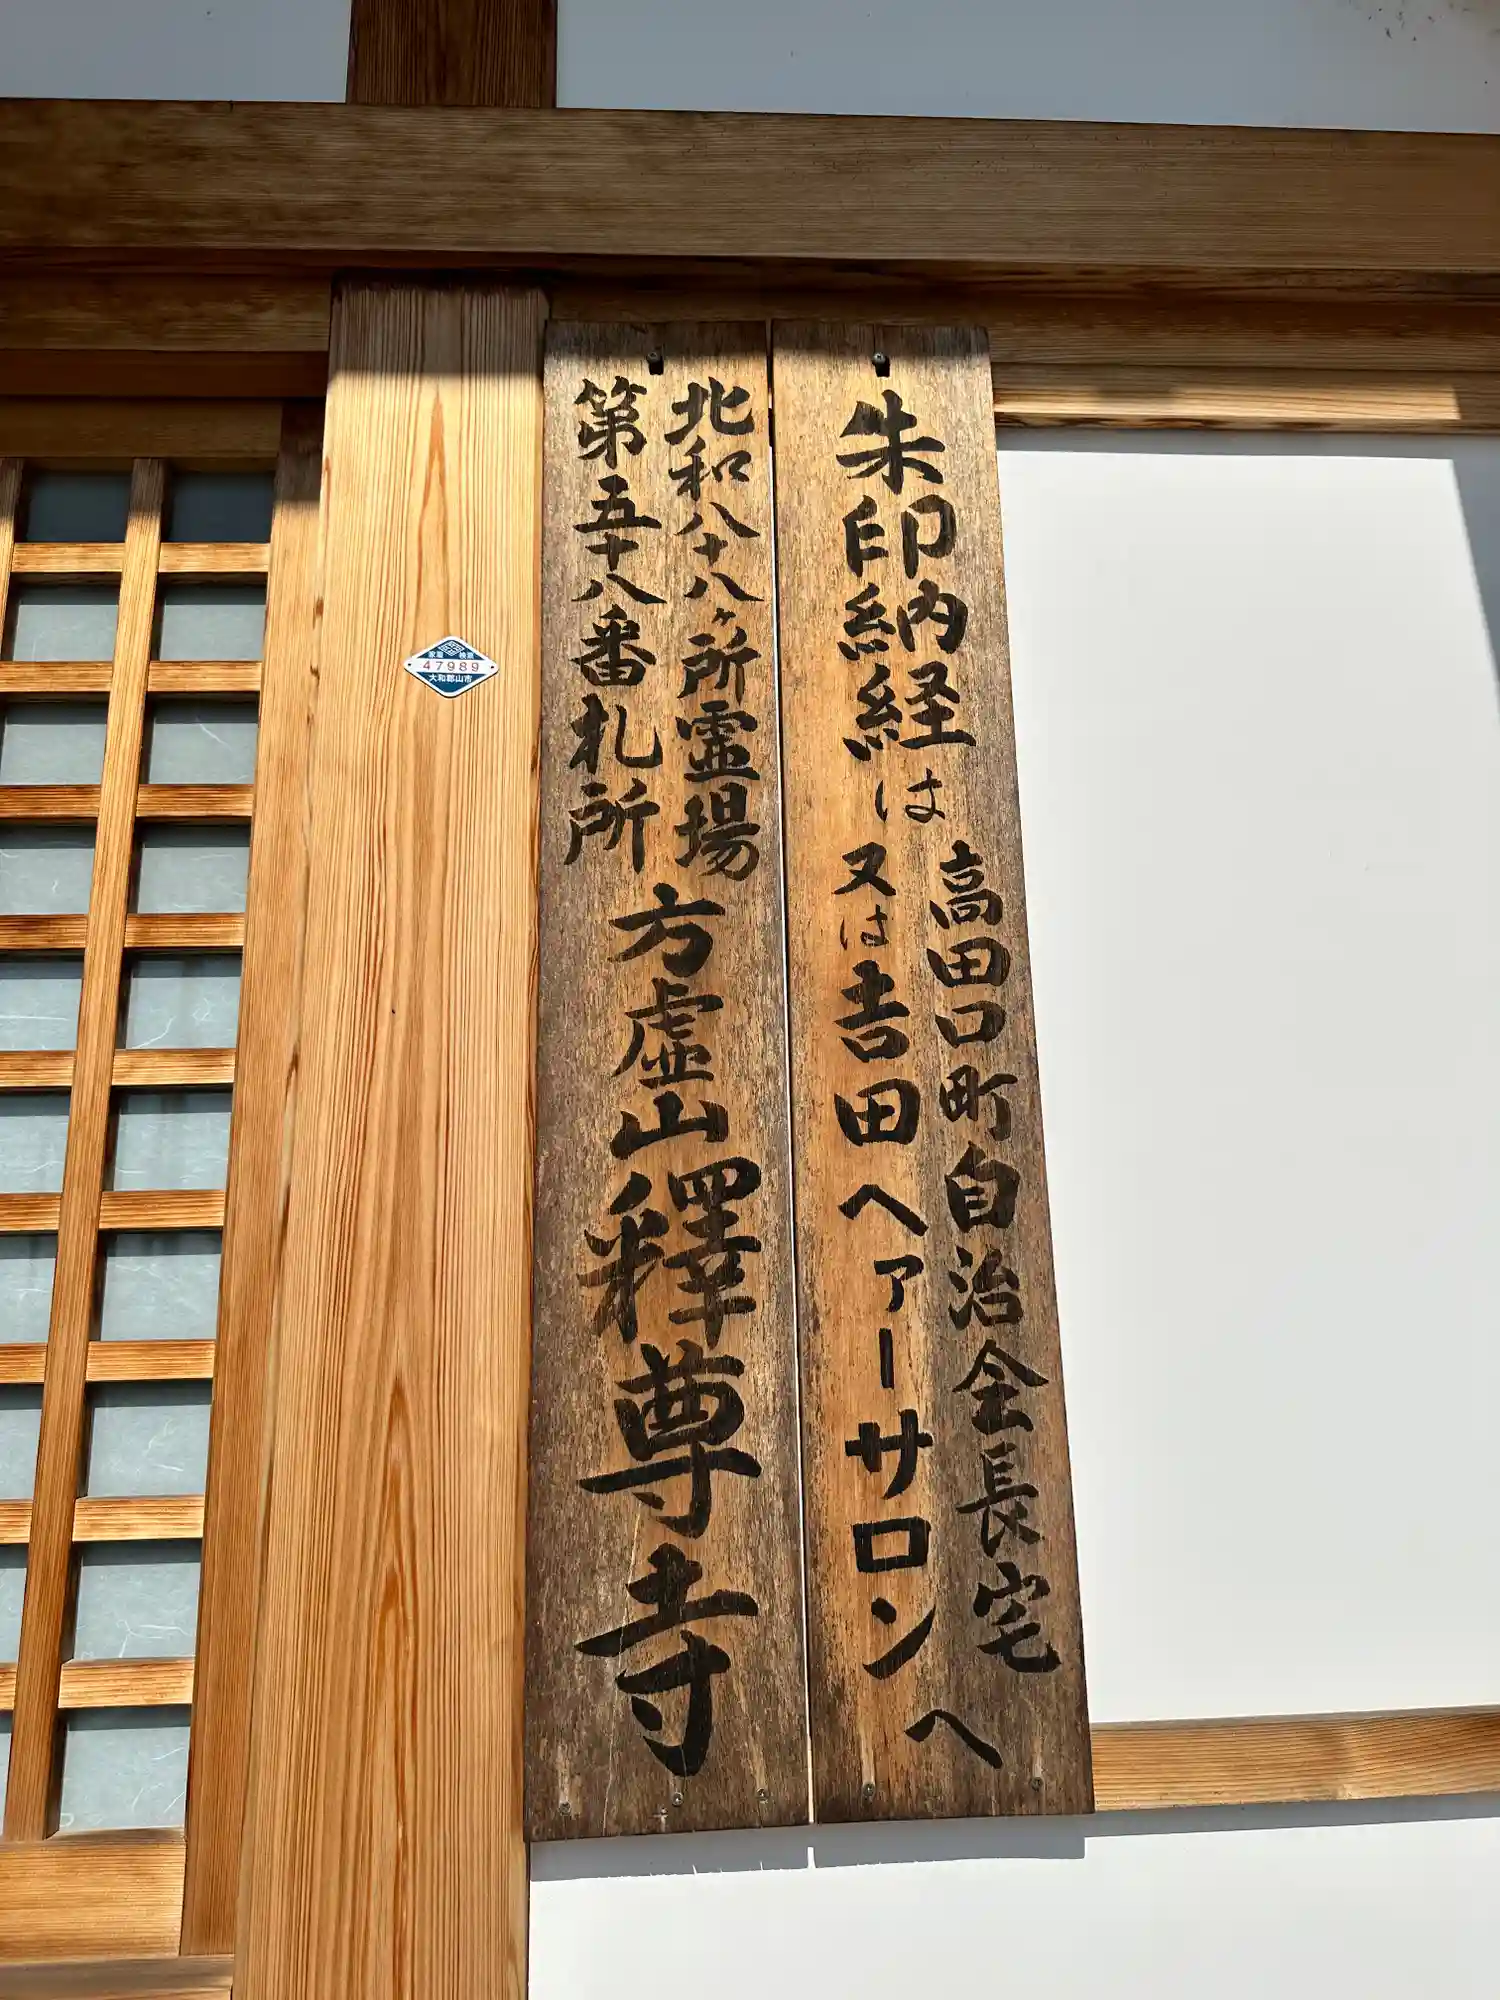 朱印納経は
高田口町自治会長宅
又は吉田ヘアーサロンへ
北和八十八ヶ所霊場
第五十八番札所
方虚山釋尊寺
家屋 検票
47989
大和郡山市